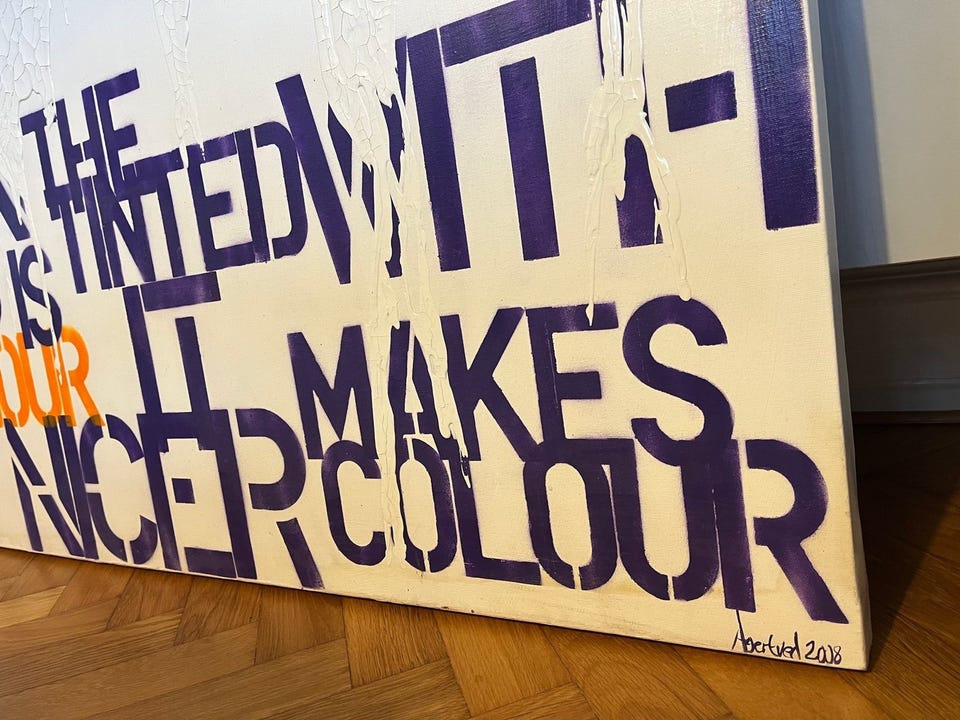 THE
TINTED WITH
IS
IT MAKES
OUR
NICER COLOUR